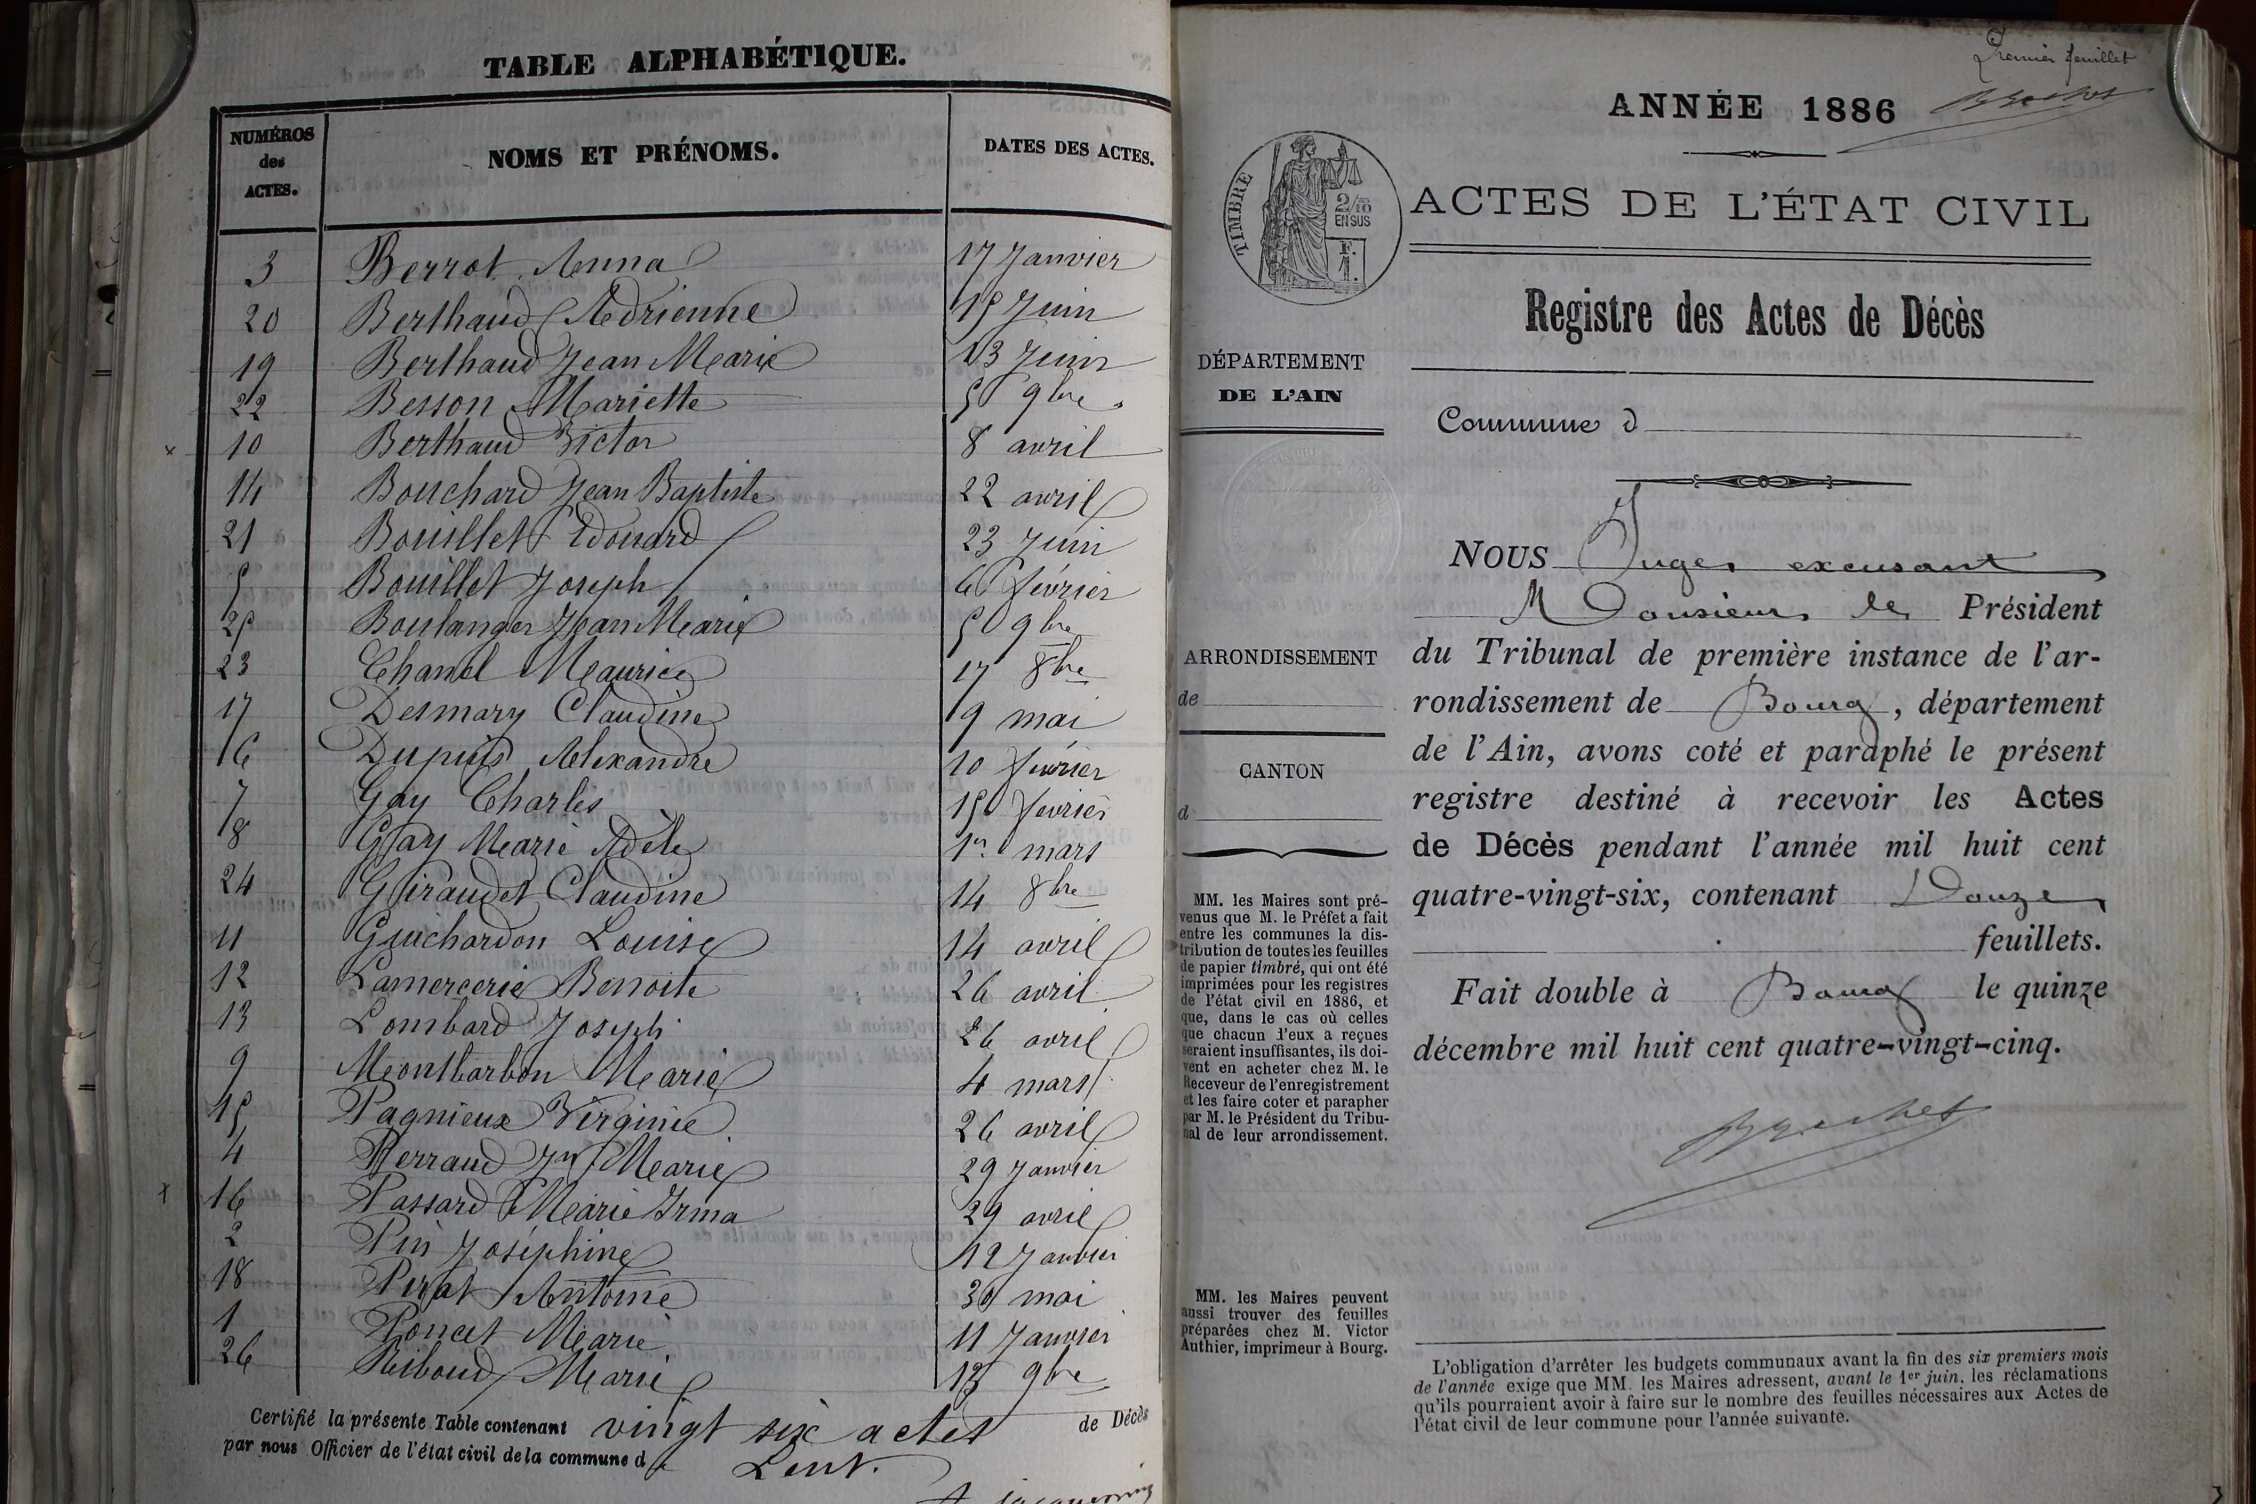 TABLE ALPHABÉTIQUE.
NUMÉROS des ACTES. NOMS ET PRÉNOMS. DATES DES ACTES.
3 Berrot Anna 17 Janvier
20 Berthaud Adrienne 15 Juin
19 Berthaud Jean Marie 13 Juin
22 Besson Mariette 5 9bre
x 10 Berthaud Victor 8 avril
14 Bouchard Jean Baptiste 22 avril
21 Bouillet Edouard 23 Juin
5 Bouillet Joseph 6 février
25 Boulanger Jean Marie 5 9bre
23 Chanel Maurice 17 8bre
17 Desmary Claudine 9 mai
6 Dupuis Alexandre 10 février
7 Gay Charles 15 février
8 Gay Marie Adèle 1er mars
24 Guiraudet Claudine 14 8bre
11 Guichardon Louise 14 avril
12 Lamercerie Benoite 26 avril
13 Lombard Joseph 26 avril
9 Montbarbon Marie 4 mars
15 Pagnieux Virginie 26 avril
4 Perraud Jn Marie 29 Janvier
x 16 Passard Marie Irma 29 avril
2 Pin Joséphine 12 Janvier
18 Pirat Antoine 30 mai
1 Poncet Marie 11 Janvier
26 Riboud Marie 9bre
Certifié la présente Table contenant vingt six actes de Décès
par nous Officier de l'état civil de la commune d e Lent.
Premier feuillet
ANNÉE 1886 Brochet
TIMBRE
2/10
EN SUS
F.
1.
ACTES DE L'ÉTAT CIVIL
Registre des Actes de Décès
DÉPARTEMENT
DE L'AIN
Commune d
NOUS Juge excusant
Monsieur le Président
du Tribunal de première instance de l'ar-
rondissement de Bourg, département
de l'Ain, avons coté et paraphé le présent
registre destiné à recevoir les Actes
de Décès pendant l'année mil huit cent
quatre-vingt-six, contenant Douze
feuillets.
Fait double à Bourg le quinze
décembre mil huit cent quatre-vingt-cinq.
Brochet
ARRONDISSEMENT
de
CANTON
d
MM. les Maires sont pré-
venus que M. le Préfet a fait
entre les communes la dis-
tribution de toutes les feuilles
de papier timbré, qui ont été
imprimées pour les registres
de l'état civil en 1886, et
que, dans le cas où celles
que chacun d'eux a reçues
seraient insuffisantes, ils doi-
vent en acheter chez M. le
Receveur de l'enregistrement
et les faire coter et parapher
par M. le Président du Tribu-
nal de leur arrondissement.
MM. les Maires peuvent
aussi trouver des feuilles
préparées chez M. Victor
Authier, imprimeur à Bourg.
L'obligation d'arrêter les budgets communaux avant la fin des six premiers mois
de l'année exige que MM. les Maires adressent, avant le 1er juin, les réclamations
qu'ils pourraient avoir à faire sur le nombre des feuilles nécessaires aux Actes de
l'état civil de leur commune pour l'année suivante.